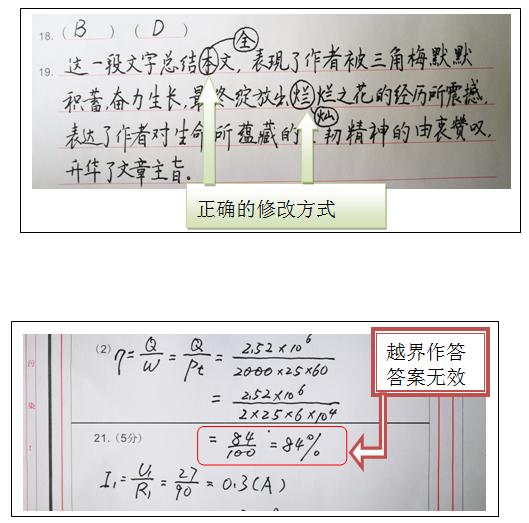 18. ( B ) ( D )
全
19. 这一段文字总结本文，表现了作者被三角梅默默
积蓄，奋力生长，最终绽放出烂烂之花的经历所震撼，
灿
表达了作者对生命所蕴藏的 韧精神的由衷赞叹，
升华了文章主旨。
正确的修改方式
越界作答
答案无效
(2) η = Q/W = Q/Pt = 2.52×10⁶/2000×25×60
= 2.52×10⁶/2×25×6×10⁴
= 84/100 = 84%
21. (5分)
I₁ = U₁/R₁ = 27/90 = 0.3(A)
污
染